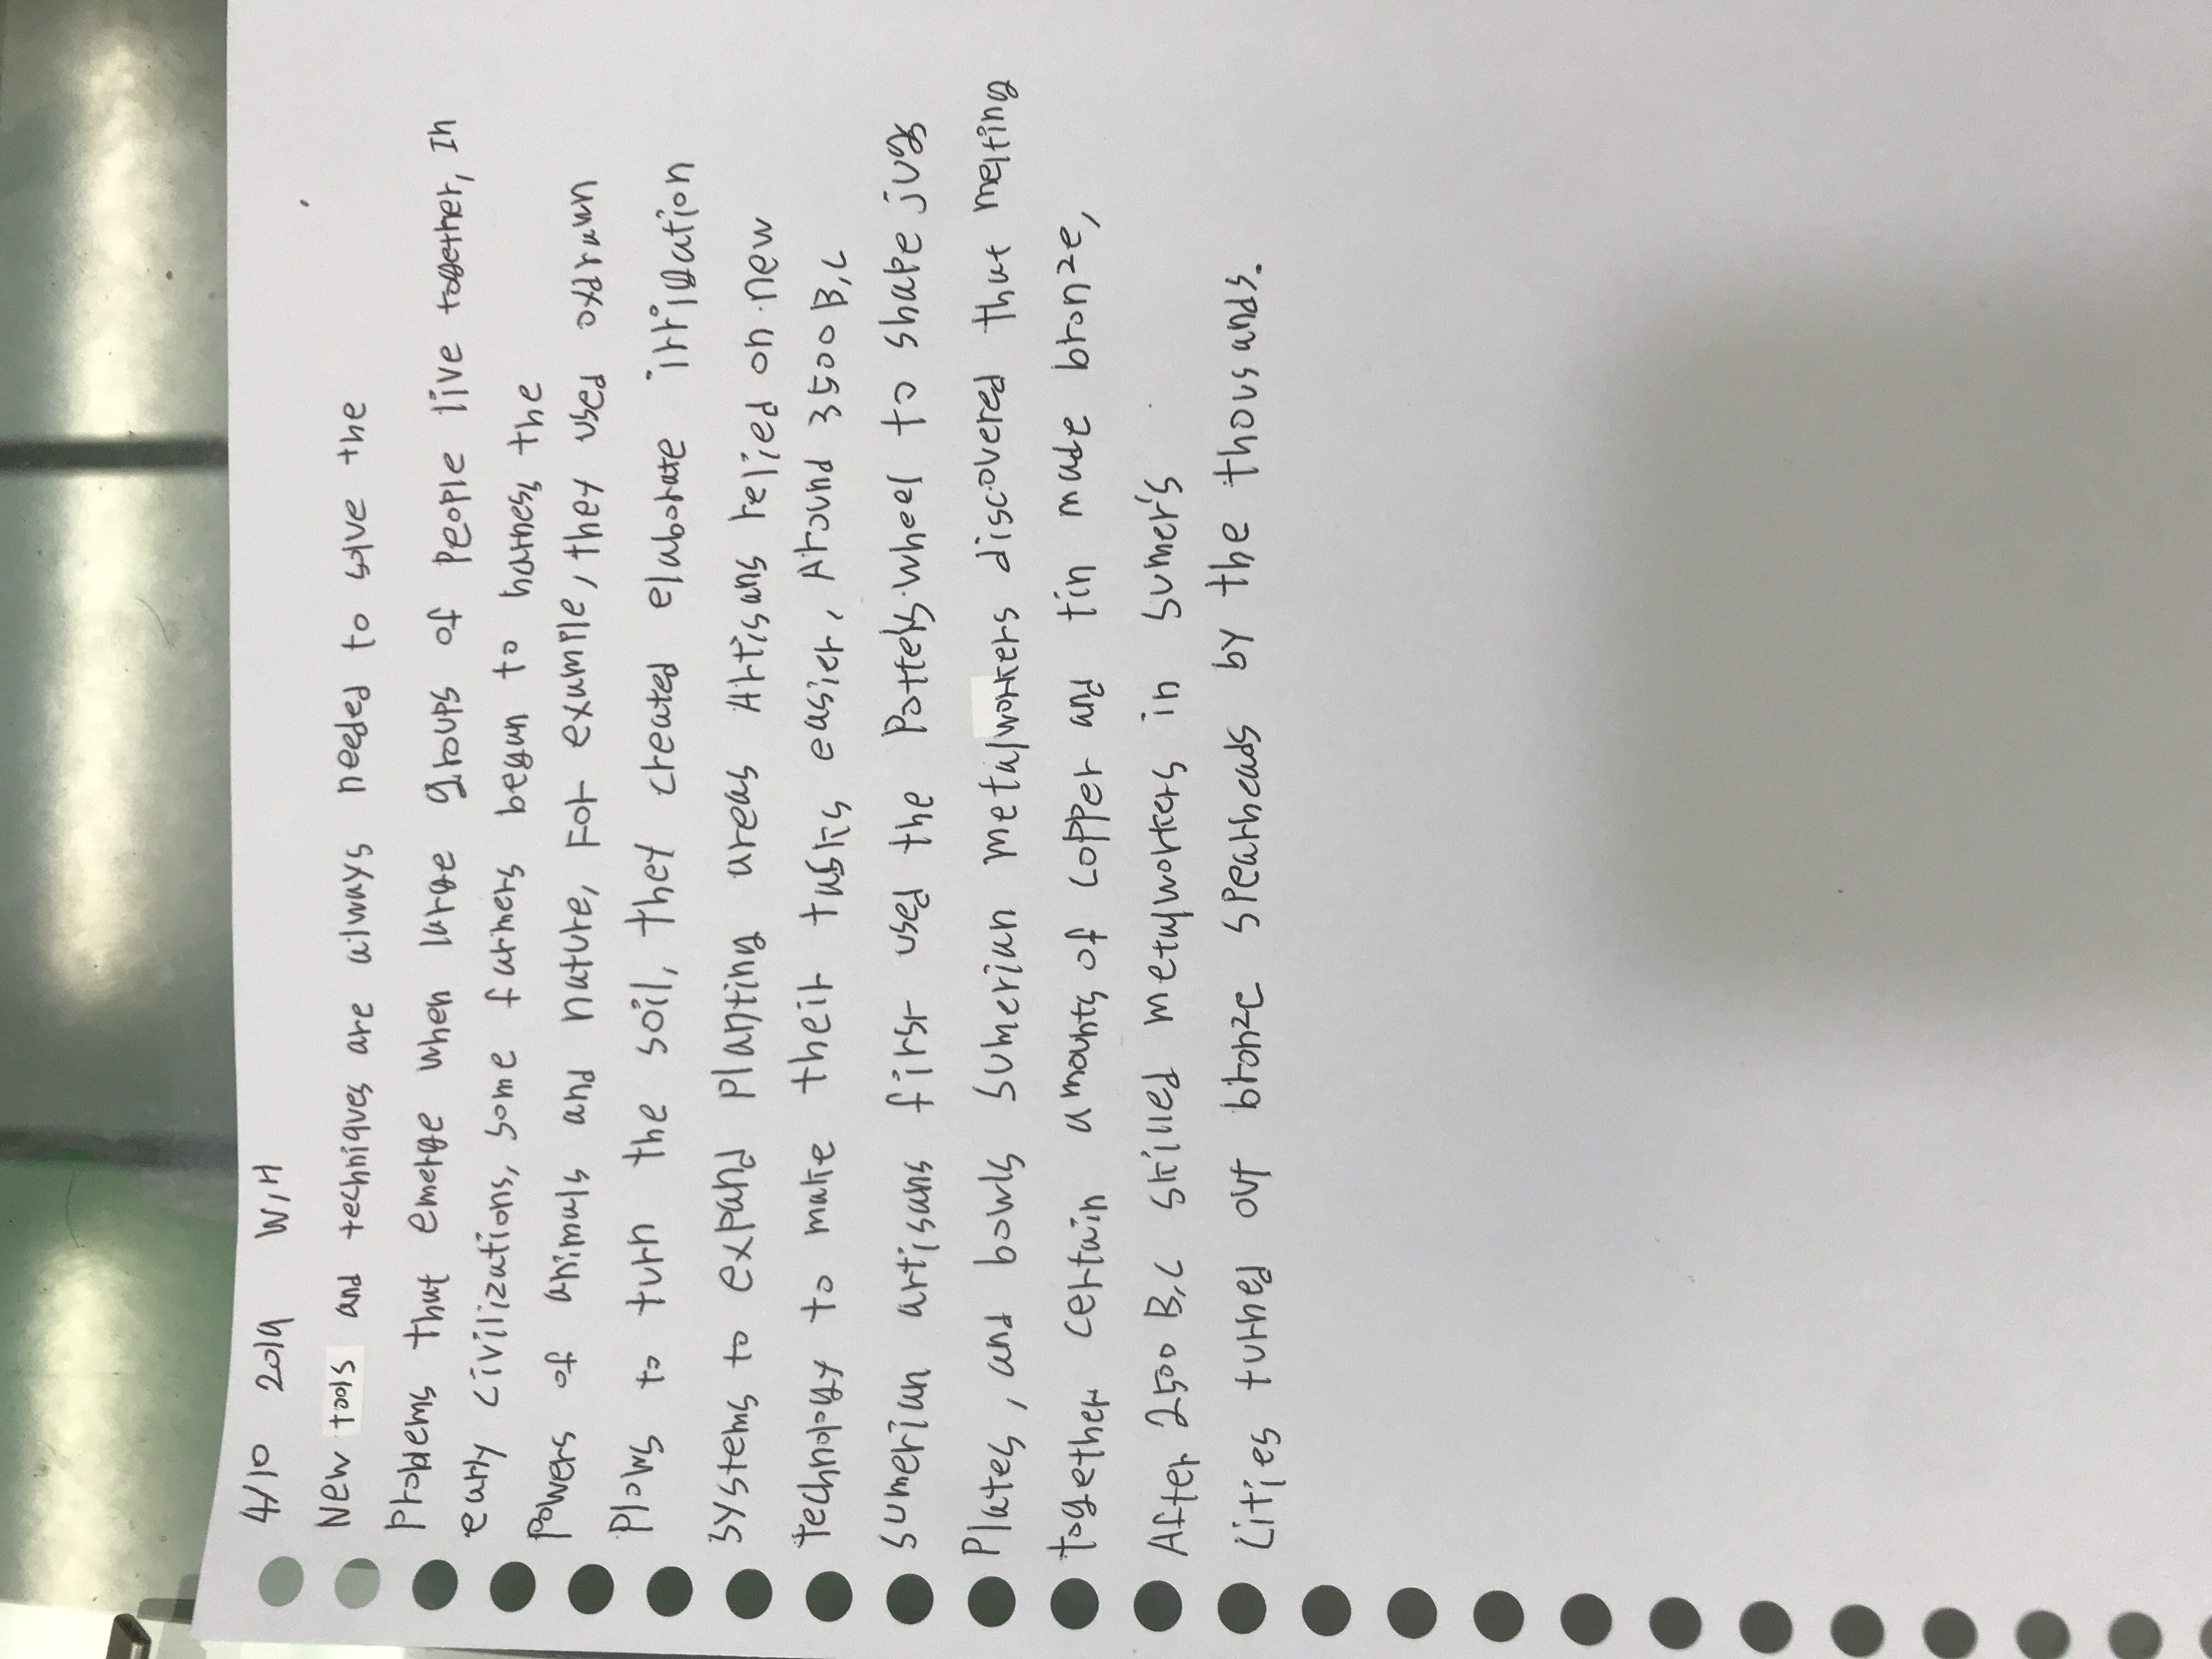 4/10 2019 W,H
New tools and techniques are always needed to solve the
Problems that emerge when large groups of People live together, In
early civilizations, some farmers began to harness the
Powers of animals and nature, For example, they used oxdrawn
Plows to turn the soil, they created elaborate irrigation
systems to expand planting areas Artisans relied on new
technology to make their tasks easier, Around 3500 B,C
sumerian artisans first used the Potters wheel to shape jugs
Plates, and bowls sumerian metalworkers discovered that melting
together certain amounts of copper and tin made bronze,
After 2500 B,C skilled metalworkers in sumer's
cities turned out bronze spearheads by the thousands.